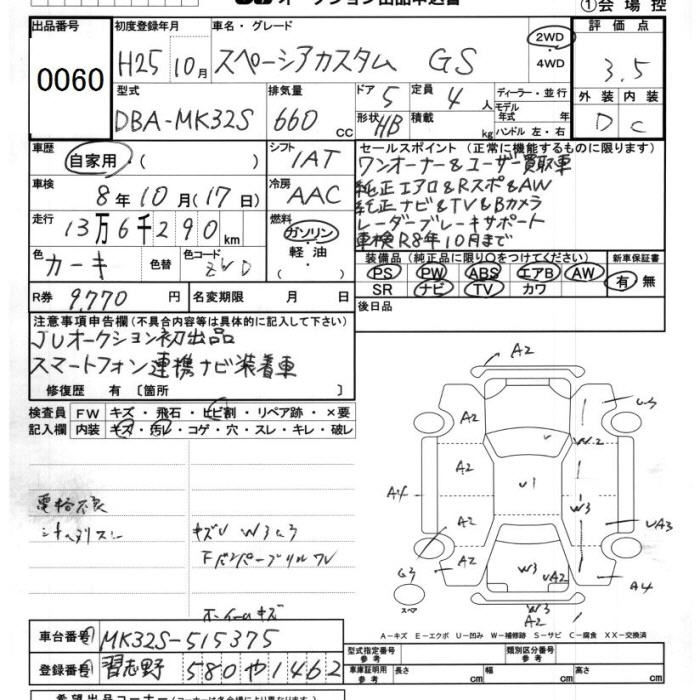 ①会場控
出品番号
0060
初度登録年月
H25 10月
車名・グレード
スペーシアカスタム GS
2WD
・
4WD
評価点
3.5
外装 内装
D C
型式
DBA-MK32S
排気量
660 cc
ドア 5
定員 4 人
形状 HB
積載 kg
ディーラー・並行
モデル年式 年
ハンドル 左・右
車歴
自家用・( )
シフト
IAT
車検
8年10月(17日)
冷房
AAC
走行
13万6千290km
燃料
ガソリン
軽・油
色
カーキ
色替
色コード
ZVD
R券 9,770 円
名変期限 月 日
セールスポイント(正常に機能するものに限ります)
ワンオーナー&ユーザー買取車
純正エアロ&Rスポ&AW
純正ナビ&TV&Bカメラ
レーダーブレーキサポート
車検R8年10月まで
装備品(純正品に限り○をつけてください)
PS PW ABS エアB AW
SR ナビ TV カワ
新車保証書
有・無
後日品
注意事項申告欄(不具合内容等は具体的に記入して下さい)
JUオークション初出品
スマートフォン連携ナビ装着車
修復歴 有 〔箇所 〕
検査員
記入欄
FW キズ・飛石・ヒビ割・リペア跡・×要
内装 キズ・汚レ・コゲ・穴・スレ・キレ・破レ
電格不良
キズU W3 G3
Fバンパーグリルワレ
ホイールキズ
A2
A2
G3
W2
A2
A4
U1
W3
A2
UA3
A2
W3
UA2
A4
G3
スペア
W3
A2
A-キズ E-エクボ U-凹み W-補修跡 S-サビ C-腐食 XX-交換済
車台番号 MK32S-515375
登録番号 習志野 580 や 1462
型式指定番号
参考
類別区分番号
参考
車庫証明用
参考
長さ cm 幅 cm 高さ cm